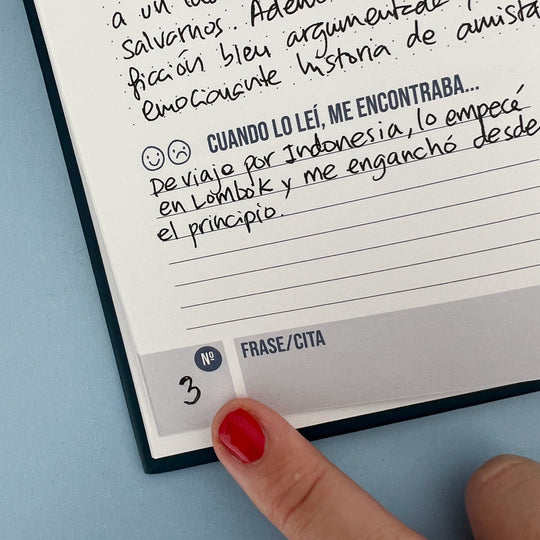 a un
salvarnos. Además
ficción bien argumentada
emocionante historia de amista
CUANDO LO LEÍ, ME ENCONTRABA...
De viaje por Indonesia, lo empecé
en Lombok y me enganchó desde
el principio.
Nº
FRASE/CITA
3